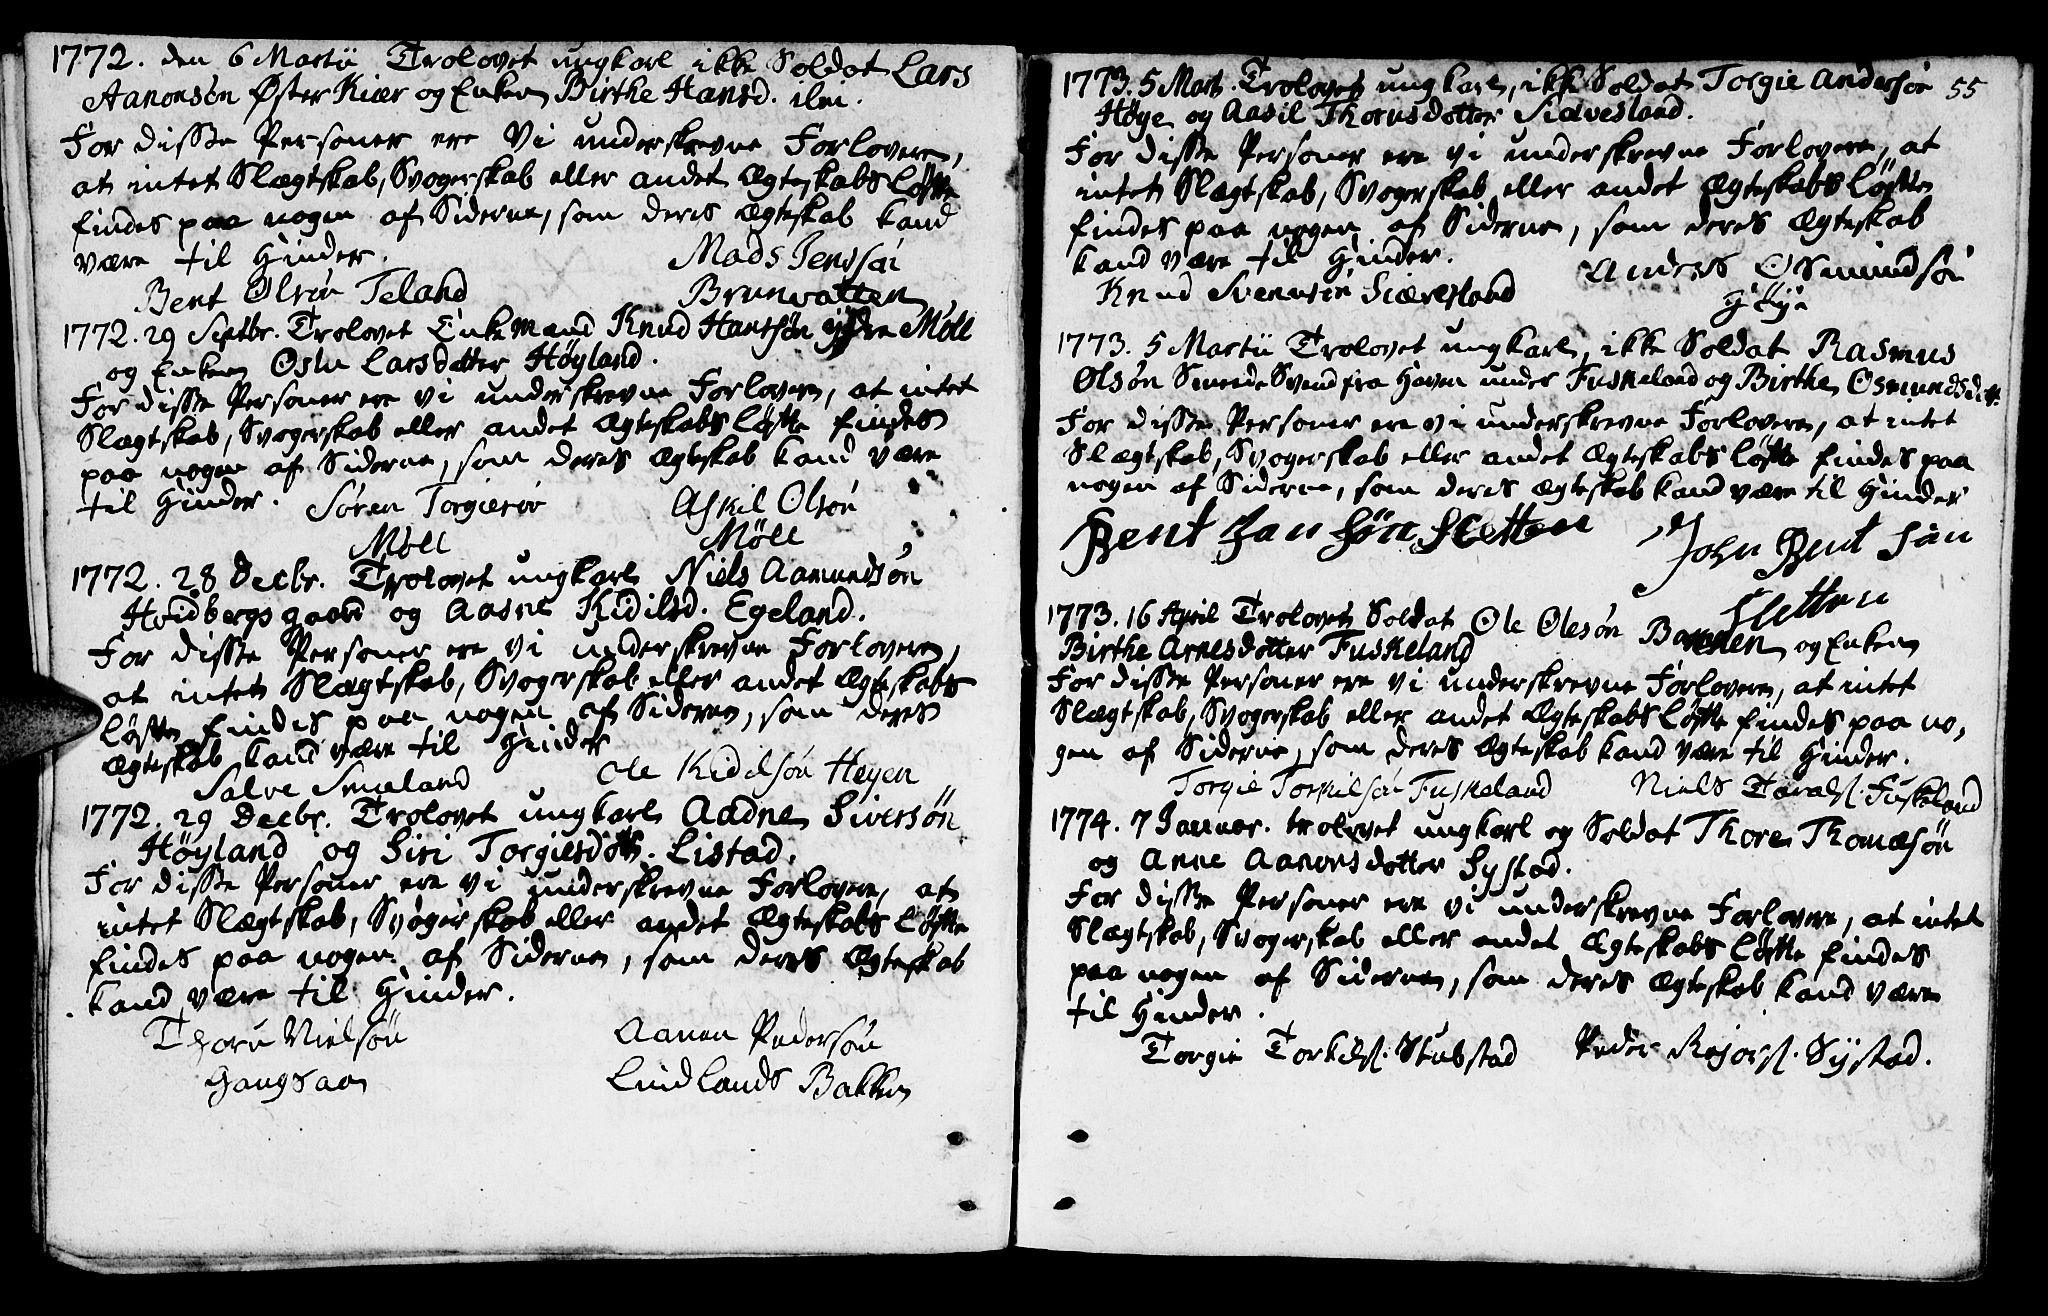 1772. den 6 Martii Trolovet ungkarl ikke Soldat Lars
Aanonsøn Øster Kiær og Enken Birthe Hansd. ibid.
For disse Personer ere Vi underskrevne Forlovere,
at intet Slægtskab, Svogerskab eller andet Ægteskabs løfte
findes paa nogen af Siderne, som deres Ægteskab kand
være til Hinder. Mads Jenssøn
Bent Olsøn Teland Brunvatten
1772. 29 Septbr. Trolovet Enkemand Knud Hansøn ydre Møll
og Enken Oslu Larsdotter Høyland.
For disse Personer ere vi underskrevne Forlovere, at intet
Slægtskab, Svogerskab eller andet Ægteskabs løfte findes
paa nogen af Siderne, som deres Ægteskab kand være
til Hinder. Søren Torgiersøn Askil Olsøn
Møll Møll
1772. 28 Decbr. Trolovet ungkarl Niels Aamundsøn
Hvidbergsgaard og Aasne Kidilsd. Egeland.
For disse Personer ere vi underskrevne Forlovere,
at intet Slægtskab, Svogerskab eller andet Ægteskabs
løfte findes paa nogen af Siderne, som deres
Ægteskab kand være til Hinder
Salve Smeland Ole Kidilsøn Heyen
1772. 29 Decbr. Trolovet ungkarl Aadne Siversøn
Høyland og Siri Torgiersdott. Listad.
For disse Personer ere vi underskrevne Forlovere, at
intet Slægtskab, Svogerskab eller andet Ægteskabs løfte
findes paa nogen af Siderne, som deres Ægteskab
kand være til Hinder.
Thore Nielsøn Aanen Pedersøn
Haugsaa Lindlands Bakken
1773. 5 Mart. Trolovet ungkarl, ikke Soldat Torgie Andersøn 55
Høye og Aasil Thorsdotter Siævesland.
For disse Personer ere vi underskrevne Forlovere, at
intet Slægtskab, Svogerskab eller andet Ægteskabs løfte
findes paa nogen af Siderne, som deres Ægteskab
kand være til Hinder. Anders Osmundsøn
Knud Svennsøn Siævesland Høye
1773. 5 Martii Trolovet ungkarl, ikke Soldat Rasmus
Olsøn Smeede Svend fra Haven under Fuskeland og Birthe Osmundsdott.
For disse Personer ere vi underskrevne Forlovere, at intet
Slægtskab, Svogerskab eller andet Ægteskabs løfte findes paa
nogen af Siderne, som deres Ægteskab kand være til Hinder
Bent Jansøn Sletten John Bentsøn
Sletten
1773. 16 April Trolovet Soldat Ole Olesøn og Enken
Birthe Arnesdotter Fuskeland
For disse Personer ere vi underskrevne Forlovere, at intet
Slægtskab, Svogerskab eller andet Ægteskabs løfte findes paa no,
gen af Siderne, som deres Ægteskab kand være til Hinder.
Torgie Torkilsøn Fuskeland Niels Taralds. Fuskeland
1774. 7 Januar. trolovet ungkarl og Soldat Thore Thomæsøn
og Anne Aanonsdotter Systad.
For disse Personer ere vi underskrevne Forlovere, at intet
Slægtskab, Svogerskab eller andet Ægteskabs løfte findes
paa nogen af Siderne, som deres Ægteskab kand være
til Hinder.
Torgie Torkils. Stubstad Peder Rejers. Systad.